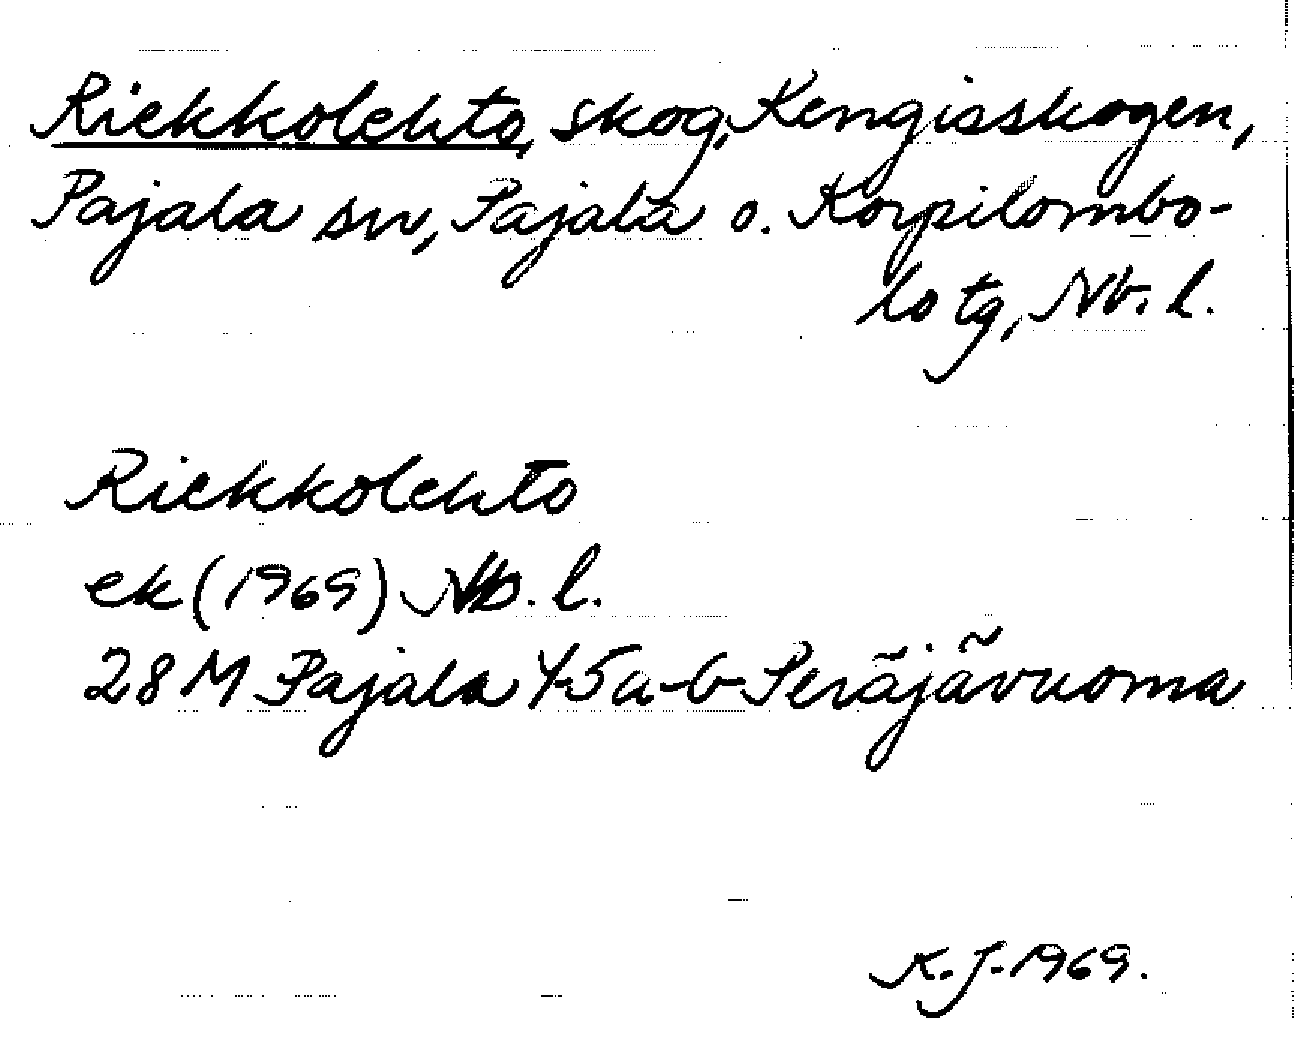 Riekkolehto, skog, Kengisskogen,
Pajala sn, Pajala o. Korpilombo-
lo tg, Nb. l.
Riekkolehto
ek (1969) Nb. l.
28 M Pajala 45a-b Peräjävuoma
K. J. 1969.